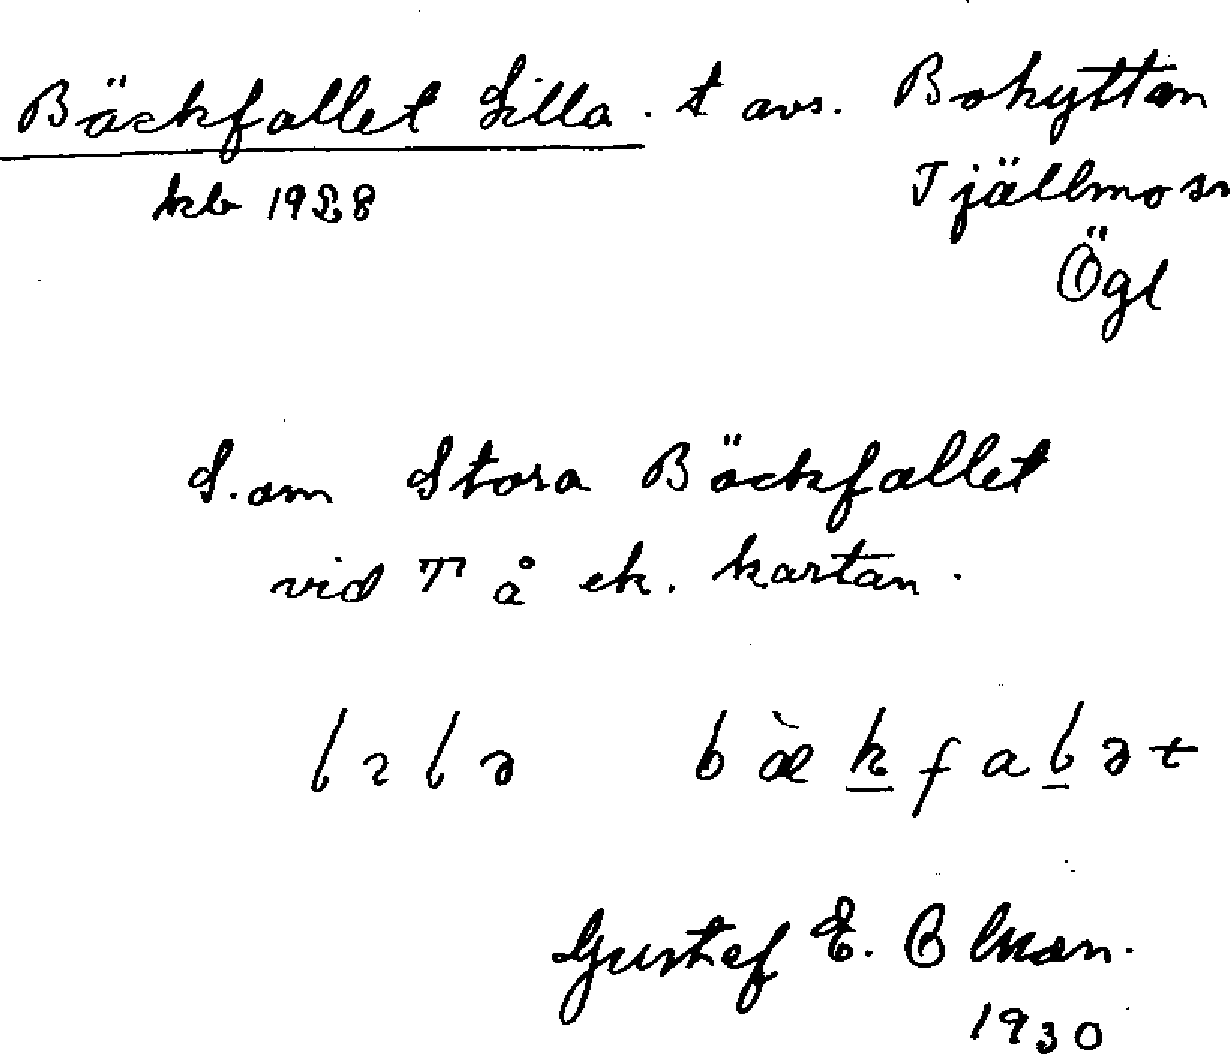 Bäckfallet Lilla. t avs. Bohyttan
kb 1928 Tjällmo sn
Ögl
S. om Stora Bäckfallet
vid T å ek. kartan.
bæ̀kfalət
Gustef E. Olsson.
1930